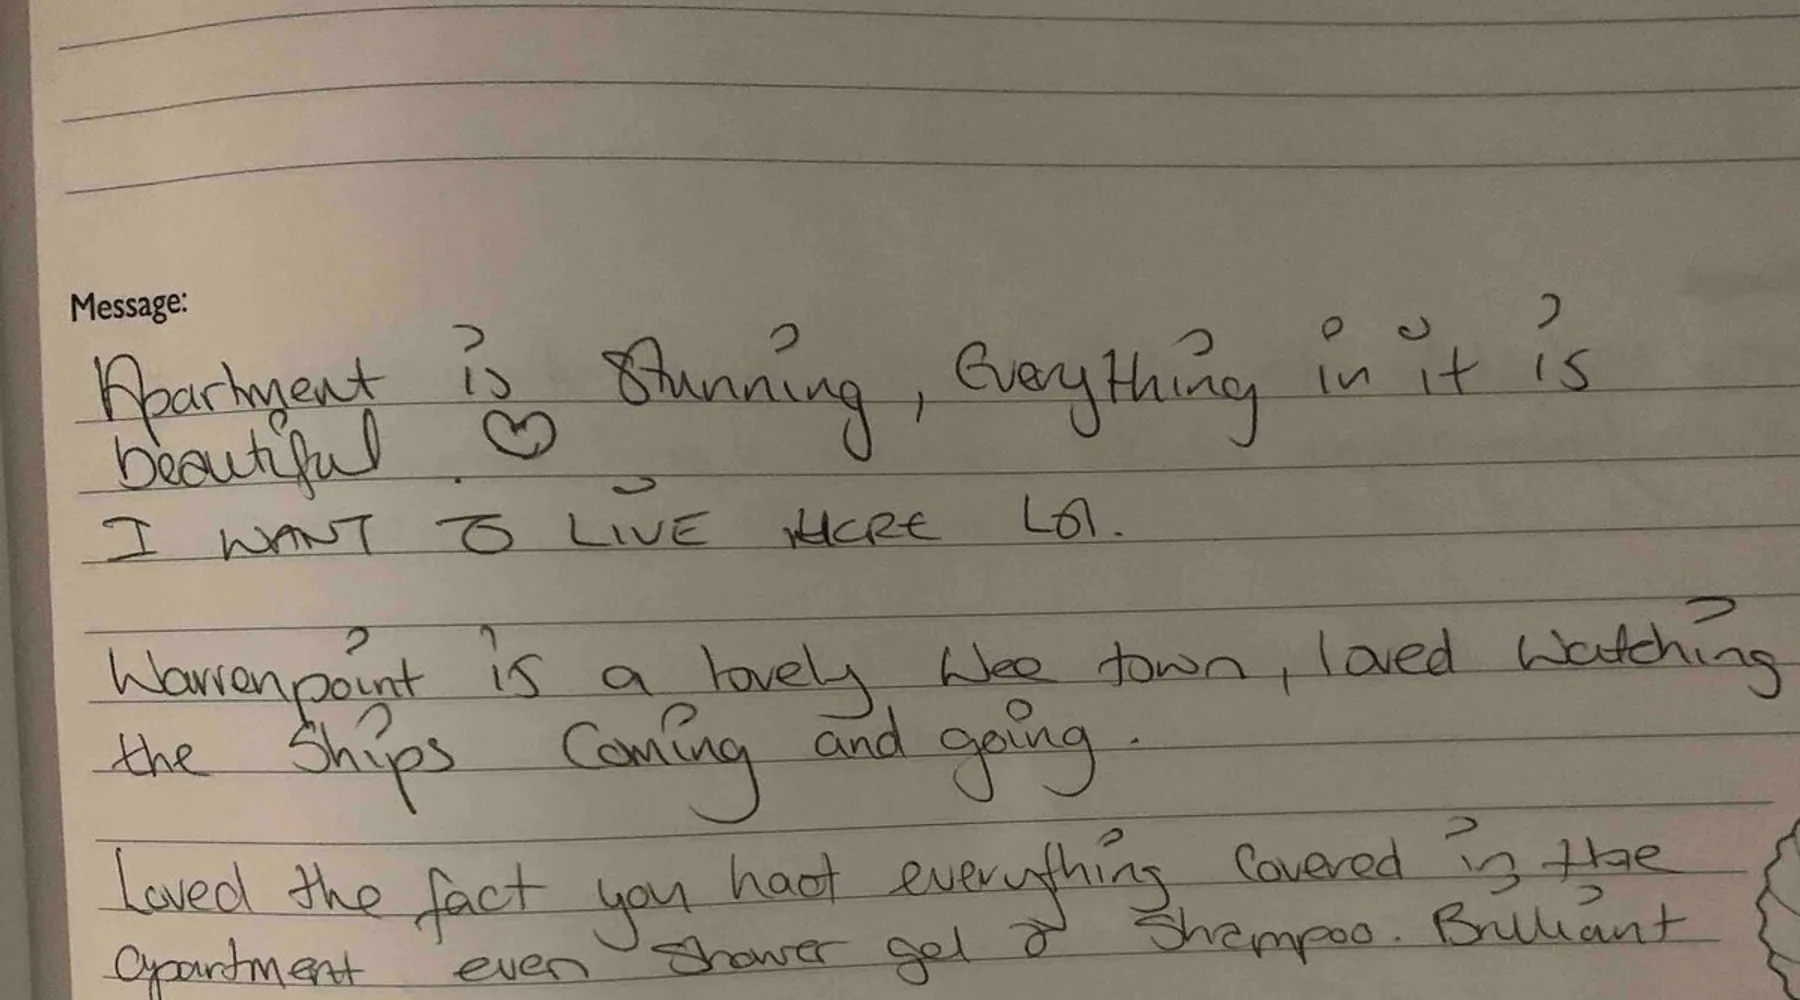 Message:
Apartment is Stunning, Everything in it is
beautiful. ♡
I WANT TO LIVE HERE Lol.
Warrenpoint is a lovely Wee town, loved Watching
the Ships Coming and going.
Loved the fact you had everything Covered in the
apartment even Shower gel & Shampoo. Brilliant